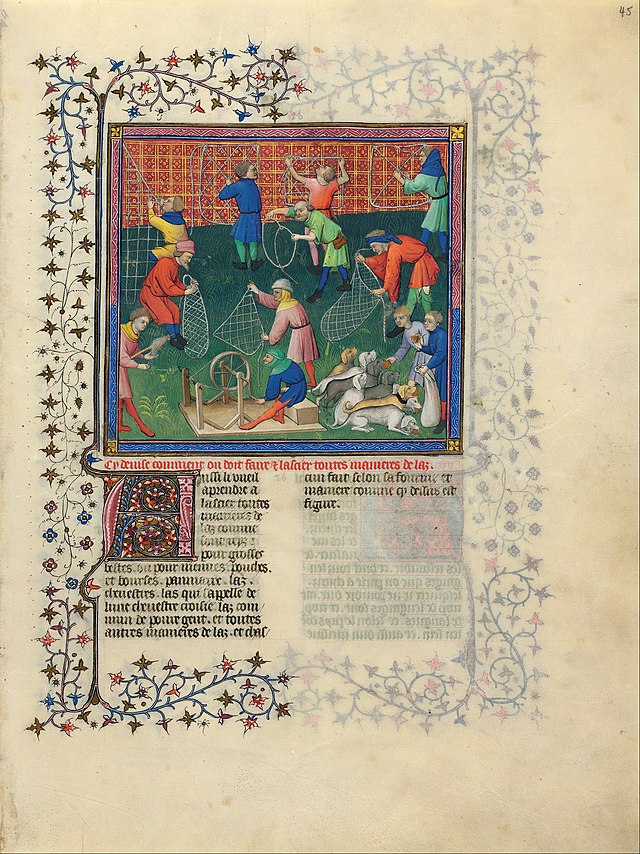 45
Cy deuise comment on doit faire & lascier toutes manieres de laz.
Aussi le vueil
aprendre a
lascier toutes
manieres de
laz comme
sont retz
pour grosses
bestes. ou pour menues. pouches.
et bourses. panniaux. laz.
cheuestres. las qui sapelle de
lune cheuestre croisie laz com
mun de pour gent. et toutes
autres manieres de laz. et chas
cun fait selon sa fourme et
maniere comme cy dessus est
figure.
26